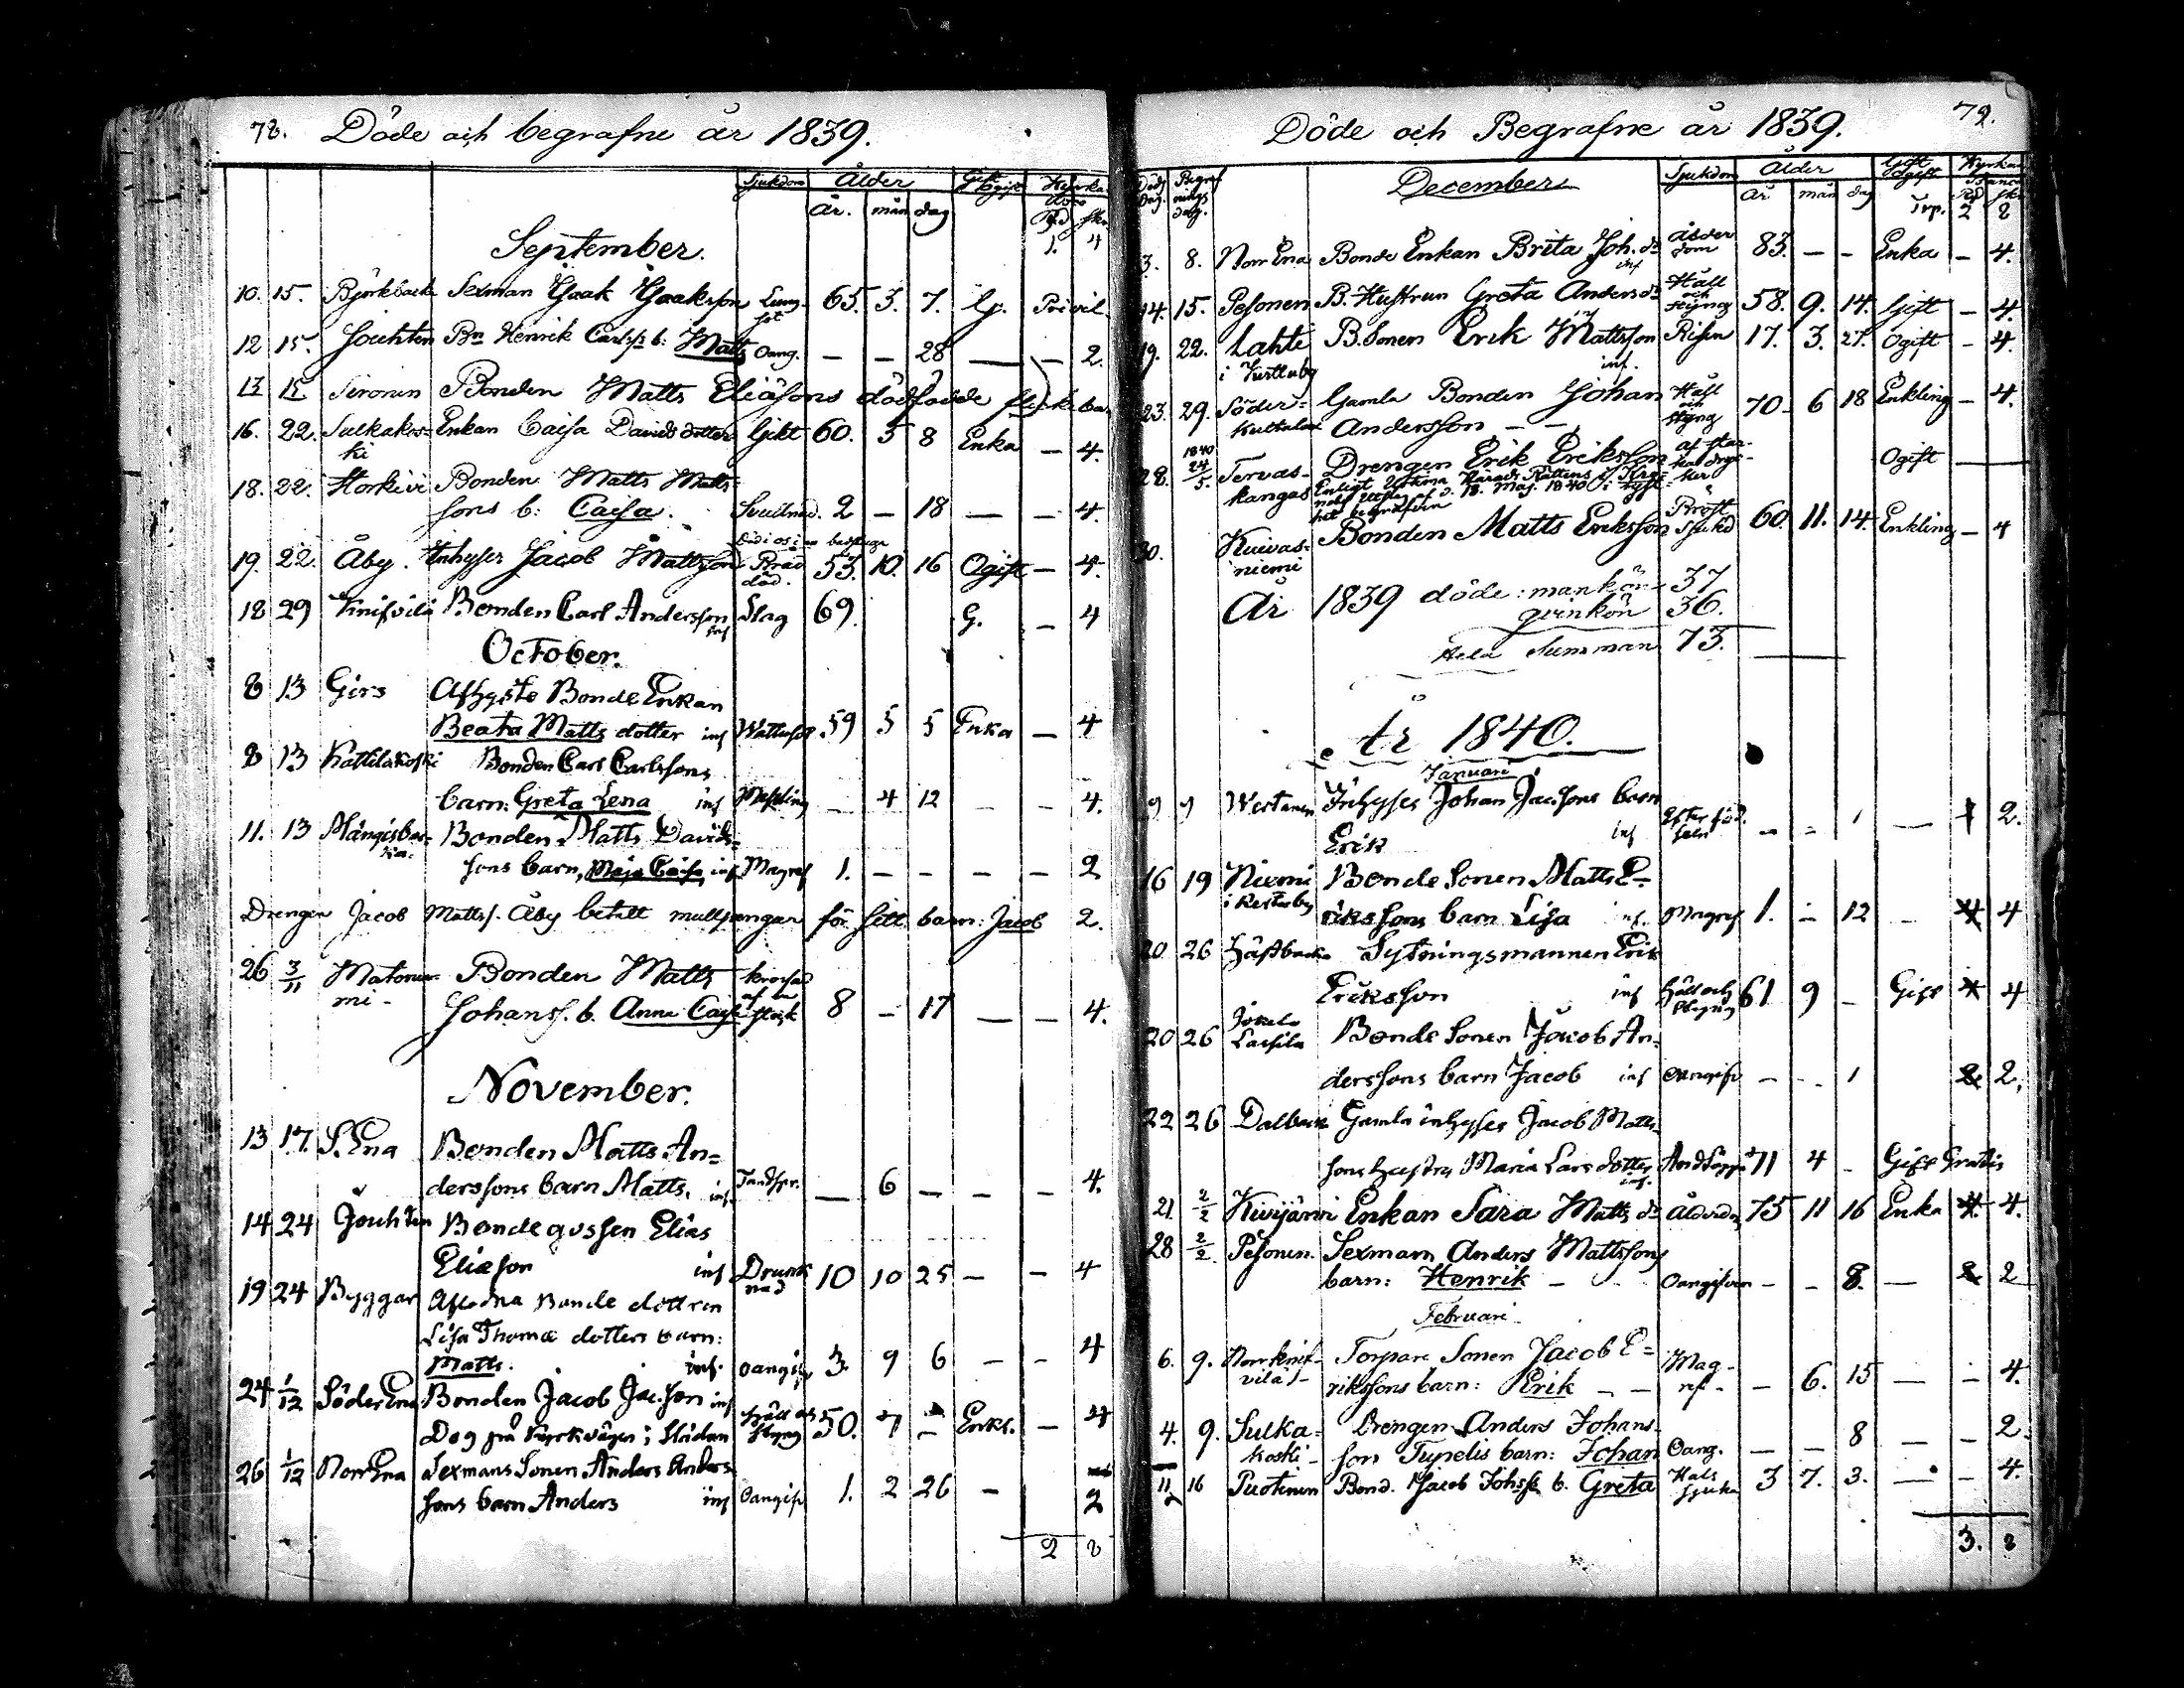 78. Döde och begrafne år 1839.
Sjukdom Ålder Gift Ogift Kyrkan
år. mån dag Rd sk.
September. 1. 4
10. 15. Björkbacka Sexman Isaak Isaaksson Lungsot 65. 3. 7. G. Privil.
12 15. Jouhten Bn Henrik Carlss b: Matts Oang. — — 28 — — 2.
13 15. Sironen Bonden Matts Eliæsons dödfödde flickebarn
16. 22. Sulkakos- Enkan Caisa Davids dotter Gikt 60. 5 8 Enka — 4.
ki
18. 22. Horkivi Bonden Matts Matts-
sons b: Caisa. 2 — 18 — — 4.
19. 22. Åby. Inhyses Jacob Mattsson Bråd död. 53. 10. 16 Ogift — 4.
18 29 Knifvilä Bonden Carl Andersson inf Slag 69. G. — 4
October.
8 13 Girs Afhyste Bonde Enkan
Beata Matts dotter inf Wattusot 59 5 5 Enka — 4
8 13 Kattilakoski Bonden Carl Carlssons
barn: Greta Lena inf Messling — 4 12 — — 4.
11. 13 Bonden Matts Davids-
sons barn, Maja Caisa, inf Magref 1. — — — — 2
Drengen Jacob Mattss. Åby betalt mullpengar för sitt barn: Jacob 2.
26 3/11 Matonie- Bonden Matts krossad
mi- Johanss. b. Anna Caisa af en stock 8 — 17 — — 4.
November.
13 17. S. Ena Bonden Matts An-
derssons barn Matts. inf. Tandspr. — 6 — — — 4.
14 24 Jouhten Bondegossen Elias
Eliæson inf Drunknad 10 10 25 — — 4
19 24 Byggar Aflidna Bonde dottren
Lisa Thomæ dotters barn:
Matts. inf. oangif 3. 9 6 — — 4
24 1/12 Söder Ena Bonden Jacob Jacsson inf Håll och styng 50. 7 — Enkl. — 4
Dog på kyrkvägen i slädan
26 1/12 Norr Ena Sexmans Sonen Anders Anders-
sons barn Anders inf Oangif 1. 2 26 — 2
2 8
Döde och Begrafne år 1839. 79.
Döds Dag. Begrafnings dag. December Sjukdom Ålder Gift Ogift Kyrkan
År mån dag Trp. 2 8
3. 8. Norr Ena Bonde Enkan Brita Joh. dr inf Ålderdom 83. — — Enka — 4.
14. 15. Pesonen B. Hustrun Greta Anders dr Håll och styng 58. 9. 14. Gift — 4.
19. 22. Lahti B. Sonen Erik Mattsson inf. Risen 17. 3. 27. Ogift — 4.
i Kurttuby
23. 29. Söder- Gamla Bonden Johan Håll och styng 70. 6 18 Enkling — 4.
Kultalax Andersson — —
28. 1840 24/5. Tervas- Drengen Erik Eriksson af starka drycker Ogift —
kangas Enligt Wörna Härads Rättens
d. 18. Maj. 1840 i tyst-
het begrafven
30. Kuivas- Bonden Matts Eriksson Bröst Sjukd 60. 11. 14. Enkling — 4
niemi
År 1839 döde: mankön 37
qvinkön 36.
Hela Summan 73.
År 1840.
Januari
9 9 Westanen Inhyses Johan Jacssons barn
Erik inf Efter födseln — — 1 — 2.
16 19 Niemi Bonde Sonen Matts E-
i Kestarby rikssons barn Lisa inf. Magref 1. — 12 — 4
20 26 Häftbacka Sytningsmannen Erik
Eriksson inf Håll och Styng 61 9 — Gift 4
20 26 Laisila Bonde Sonen Jacob An-
derssons barn Jacob inf oangifv — — 1 2 2,
22 26 Dalbacka Gamla inhyses Jacob Matts-
sons hustru Maria Lars dotter inf. Andtäppa 71 4 — Gift Gratis
21. 2/2 Kivijärvi Enkan Sara Matts dr Ålderdom 75 11 16 Enka 4. 4.
28 2/2 Pesonen. Sexman Anders Mattssons
barn: Henrik — Oangifven — — 8. — 2 2
Februari
6. 9. Norrknif- Torpare Sonen Jacob E-
vilä — rikssons barn: Erik — — Magref — 6. 15 — — 4.
4. 9. Sulka- Drengen Anders Johans-
koski — son Tupelis barn: Johan Oang. — — 8 — — 2
11 16 Puotinen Bond. Jacob Johss b. Greta Hals sjuka 3 7. 3. — — 4.
3. 8